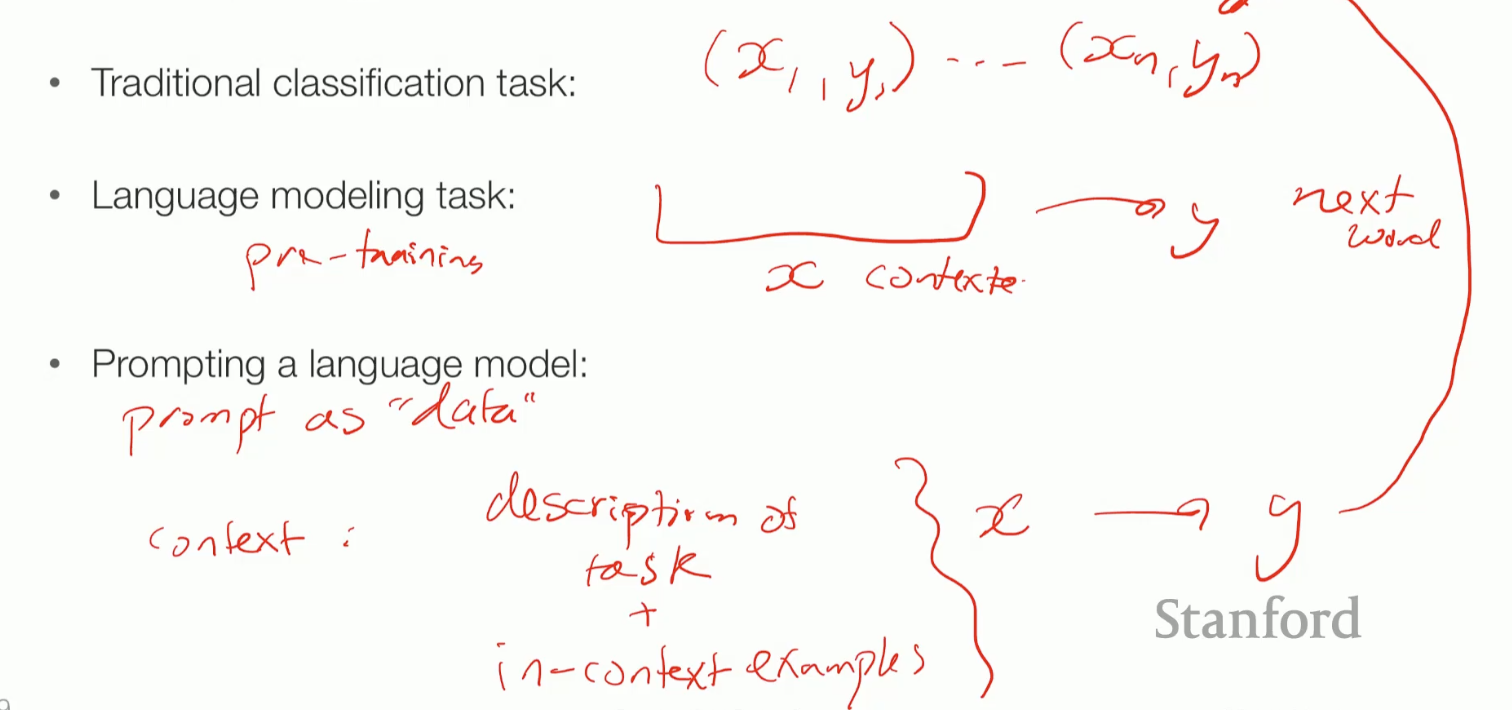 • Traditional classification task: (x1, y1) --- (xn, yn)
• Language modeling task: → y next word
pre-training
x contexte.
• Prompting a language model:
prompt as "data"
context : description of task + in-context examples } x → y
Stanford
9